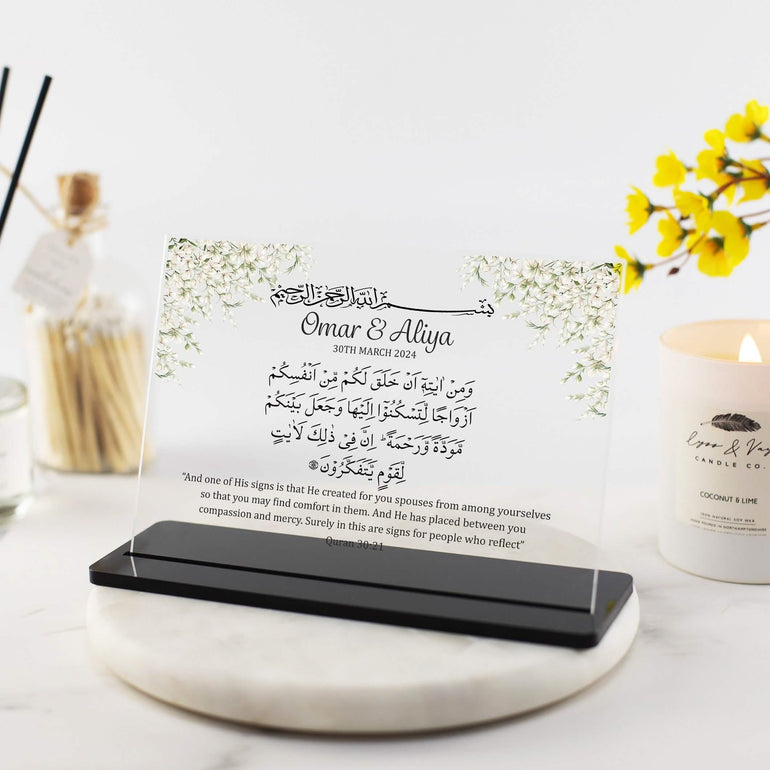 بِسْمِ اللهِ الرَّحْمٰنِ الرَّحِيْمِ
Omar & Aliya
30TH MARCH 2024
وَمِنْ اٰيٰتِهٖۤ اَنْ خَلَقَ لَكُمْ مِّنْ اَنْفُسِكُمْ
اَزْوَاجًا لِّتَسْكُنُوْۤا اِلَيْهَا وَجَعَلَ بَيْنَكُمْ
مَّوَدَّةً وَّرَحْمَةً ؕ اِنَّ فِيْ ذٰلِكَ لَاٰيٰتٍ
لِّقَوْمٍ يَّتَفَكَّرُوْنَ
“And one of His signs is that He created for you spouses from among yourselves
so that you may find comfort in them. And He has placed between you
compassion and mercy. Surely in this are signs for people who reflect”
Quran 30:21
CANDLE CO.
COCONUT & LIME